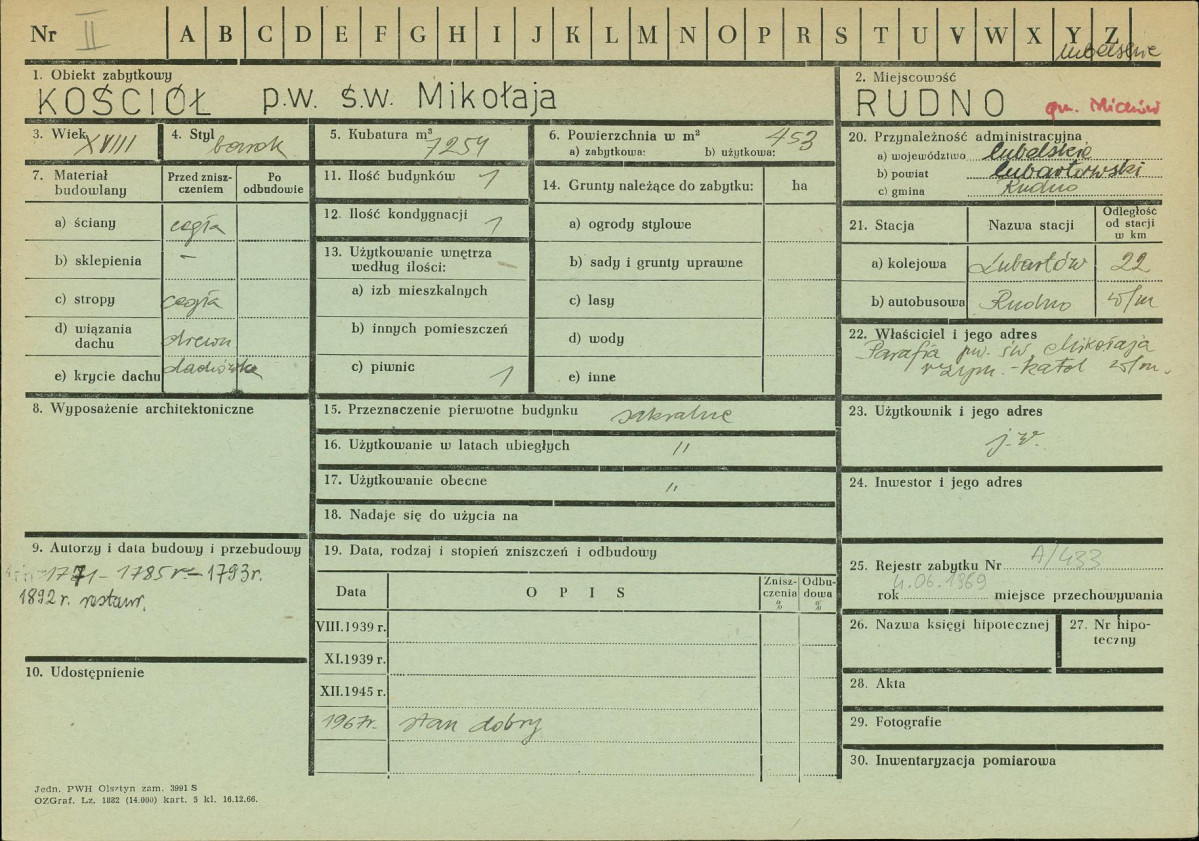 Nr II A B C D E F G H I J K L M N O P R S T U V W X Y Z
lubelskie
1. Obiekt zabytkowy
KOŚCIÓŁ p.w. ś.w. Mikołaja
2. Miejscowość
RUDNO gm. Michów
3. Wiek XVIII
4. Styl barok
5. Kubatura m³ 7254
6. Powierzchnia w m² 453
a) zabytkowa: b) użytkowa:
7. Materiał budowlany
Przed zniszczeniem
Po odbudowie
a) ściany cegła
b) sklepienia –
c) stropy cegła
d) wiązania dachu drewn
e) krycie dachu dachówka
8. Wyposażenie architektoniczne
9. Autorzy i data budowy i przebudowy
1771 – 1785 r. – 1793r.
1892 r. restaur.
10. Udostępnienie
11. Ilość budynków 1
12. Ilość kondygnacji 1
13. Użytkowanie wnętrza według ilości:
a) izb mieszkalnych
b) innych pomieszczeń
c) piwnic 1
14. Grunty należące do zabytku: ha
a) ogrody stylowe
b) sady i grunty uprawne
c) lasy
d) wody
e) inne
15. Przeznaczenie pierwotne budynku sakralne
16. Użytkowanie w latach ubiegłych "
17. Użytkowanie obecne "
18. Nadaje się do użycia na
19. Data, rodzaj i stopień zniszczeń i odbudowy
Data O P I S Zniszczenia % Odbudowa %
VIII.1939 r.
XI.1939 r.
XII.1945 r.
1967r. stan dobry
20. Przynależność administracyjna
a) województwo lubelskie
b) powiat lubartowski
c) gmina Rudno
21. Stacja Nazwa stacji Odległość od stacji w km
a) kolejowa Lubartów 22
b) autobusowa Rudno w/m
22. Właściciel i jego adres
Parafia pw. św. Mikołaja
rzym.-katol w/m.
23. Użytkownik i jego adres
j.w.
24. Inwestor i jego adres
25. Rejestr zabytku Nr A/433
rok 4.06.1969 miejsce przechowywania
26. Nazwa księgi hipotecznej
27. Nr hipoteczny
28. Akta
29. Fotografie
30. Inwentaryzacja pomiarowa
Jedn. PWH Olsztyn zam. 3991 S
OZGraf. Lz. 1882 (14.000) kart. 5 kl. 16.12.66.